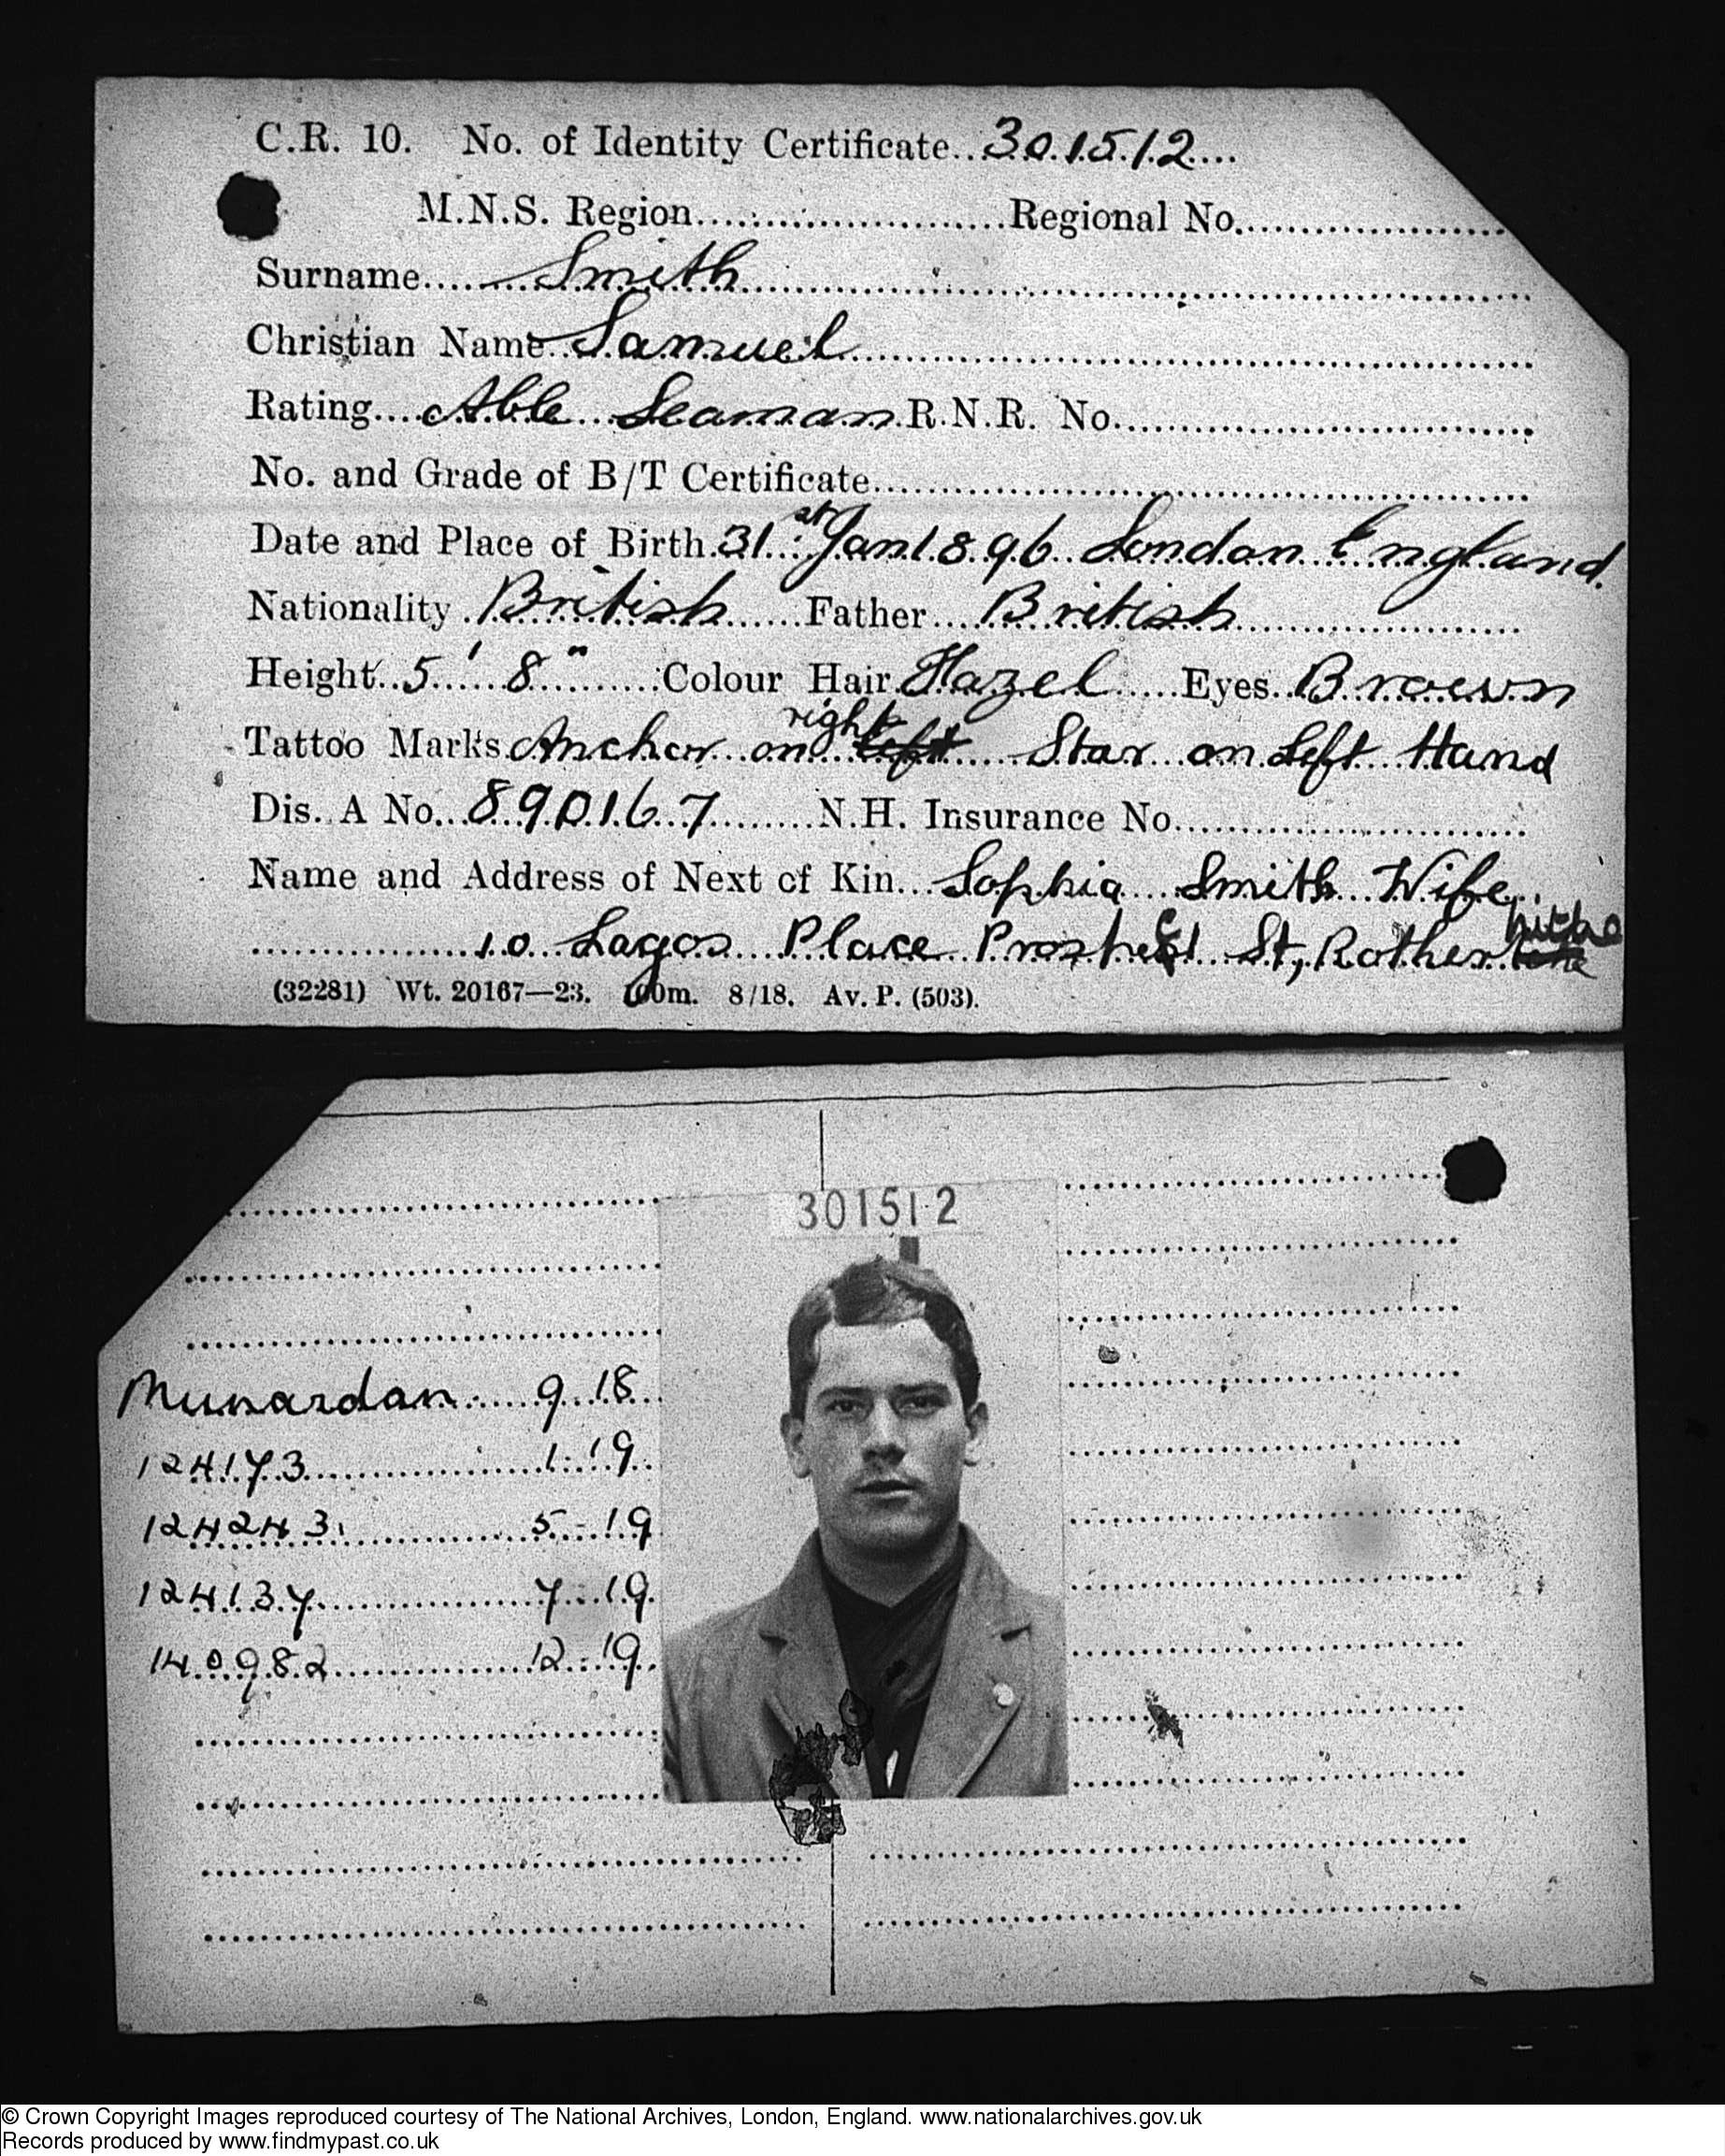 C.R. 10. No. of Identity Certificate..301512....
M.N.S. Region................Regional No................
Surname........Smith................
Christian Name..Samuel................
Rating....Able Seaman.R.N.R. No................
No. and Grade of B/T Certificate................
Date and Place of Birth.31st Jan 1896 London England.
Nationality.British......Father....British................
Height..5' 8"..........Colour Hair.Hazel.....Eyes..Brown
right
Tattoo Marks.Anchor on left Star on Left Hand
Dis. A No...890167........N.H. Insurance No................
Name and Address of Next of Kin...Sophia Smith Wife,
hithe
................10 Lagos Place Prospect St, Rother
(32281) Wt. 20167—23. 100m. 8/18. Av. P. (503).
301512
9.18
124173................1.19.
124243................5-19
124137................7-19.
140982................12-19.
© Crown Copyright Images reproduced courtesy of The National Archives, London, England. www.nationalarchives.gov.uk
Records produced by www.findmypast.co.uk